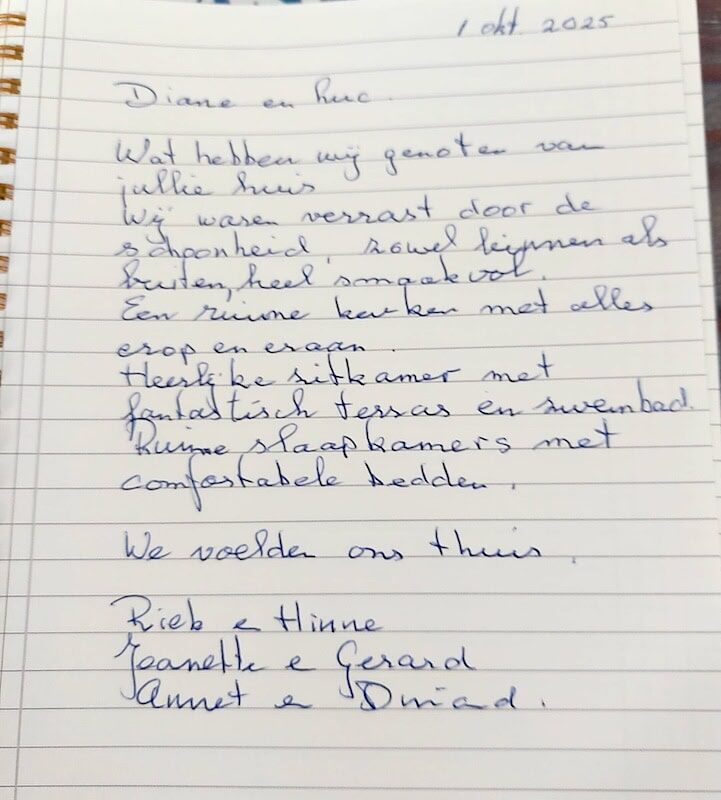 1 okt. 2025
Diane en Luc.
Wat hebben wij genoten van
jullie huis
Wij waren verrast door de
schoonheid, zowel binnen als
buiten, heel smaakvol.
Een ruime keuken met alles
erop en eraan.
Heerlijke zitkamer met
fantastisch terras en zwembad.
Ruime slaapkamers met
comfortabele bedden.
We voelden ons thuis.
e Hinne
Jeanette e Gerard
Annet e